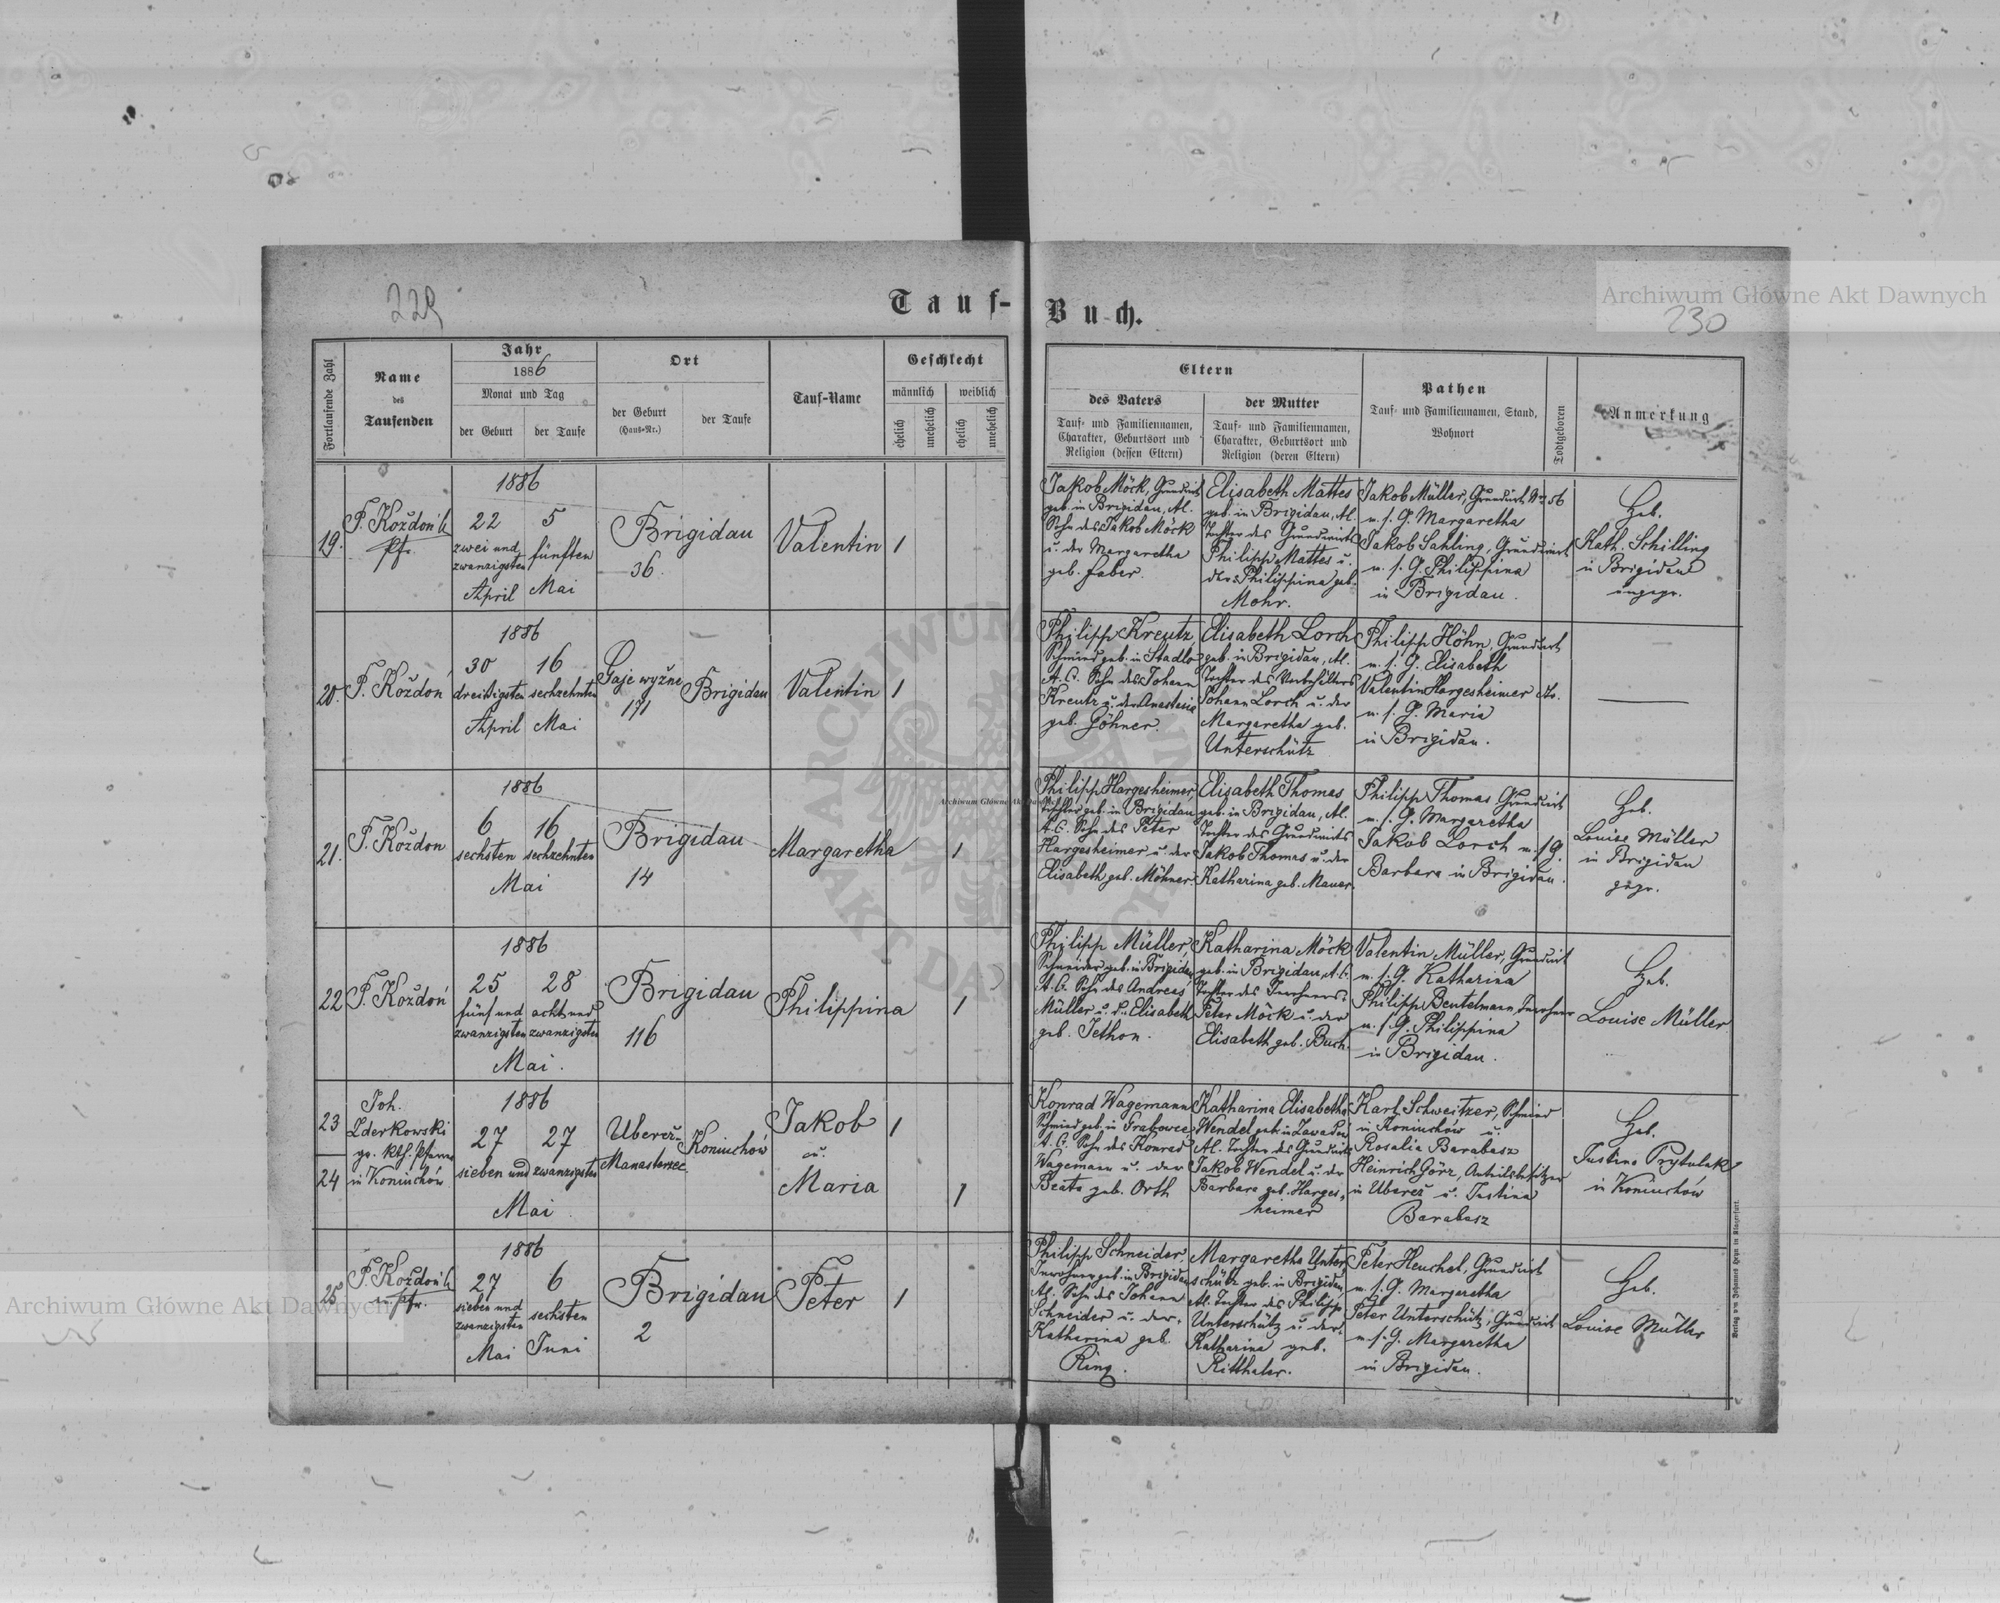 229
Tauf-
Buch.
Archiwum Główne Akt Dawnych
230
Fortlaufende Zahl
Name
des
Taufenden
Jahr
1886
Monat und Tag
der Geburt
der Taufe
Ort
der Geburt
(Haus-Nr.)
der Taufe
Tauf-Name
Geschlecht
männlich
weiblich
ehelich
unehelich
ehelich
unehelich
Eltern
des Vaters
Tauf- und Familiennamen,
Charakter, Geburtsort und
Religion (dessen Eltern)
der Mutter
Tauf- und Familiennamen,
Charakter, Geburtsort und
Religion (deren Eltern)
Pathen
Tauf- und Familiennamen, Stand,
Wohnort
Todtgeboren
Anmerkung
19.
F. Koždoń
Pfr.
1886
22
zwei und
zwanzigsten
April
5
fünften
Mai
Brigidau
36
Valentin
1
Jakob Möck, Grundwirt
geb. in Brigidau, A.C.
Sohn des Jakob Möck
u. der Margaretha
geb. Faber.
Elisabeth Mattes
geb. in Brigidau, A.C.
Tochter des Grundwirts
Philipp Mattes u.
der Philippina geb.
Mohr.
Jakob Müller, Grundwirt Nr. 56
u. s. G. Margaretha
Jakob Sahling, Grundwirt
u. s. G. Philippina
in Brigidau.
Heb.
Kath. Schilling
in Brigidau
ungepr.
20.
F. Koždoń
1886
30
dreißigsten
April
16
sechzehnten
Mai
Gaje wyżne
171
Brigidau
Valentin
1
Philipp Kreutz,
Schmied geb. in Stadlo
A.C. Sohn des Johann
Kreutz u. der Anastasia
geb. Göhner.
Elisabeth Lorch
geb. in Brigidau, A.C.
Tochter des
Johann Lorch u. der
Margaretha geb.
Unterschütz
Philipp Höhn, Grundwirt
u. s. G. Elisabeth
Valentin Hargesheimer dto.
u. s. G. Maria
in Brigidau.
21.
F. Koždoń
1886
6
sechsten
16
sechzehnten
Mai
Brigidau
14
Margaretha
1
Philipp Hargesheimer,
Tischler geb. in Brigidau
A.C. Sohn des Peter
Hargesheimer u. der
Elisabeth geb. Möhner.
Elisabeth Thomas
geb. in Brigidau, A.C.
Tochter des Grundwirts
Jakob Thomas u. der
Katharina geb. Mauer.
Philipp Thomas Grundwirt
u. s. G. Margaretha
Jakob Lorch u. s. G.
Barbara in Brigidau.
Heb.
Louise Müller
in Brigidau
gepr.
22
F. Koždoń
1886
25
fünf und
zwanzigsten
28
acht und
zwanzigsten
Mai.
Brigidau
116
Philippina
1
Philipp Müller,
Schneider geb. in Brigidau
A.C. Sohn des Andreas
Müller u. d. Elisabeth
geb. Jethon.
Katharina Möck
geb. in Brigidau, A.C.
Tochter des Inwohners
Peter Möck u. der
Elisabeth geb. Buch.
Valentin Müller, Grundwirt
u. s. G. Katharina
Philipp Beutelmann, Inwohner
u. s. G. Philippina
in Brigidau.
Heb.
Louise Müller
23
24
Joh.
Zderkowski
gr. kth. Pfarrer
in Koniuchów
1886
27
27
sieben und zwanzigsten
Mai
Ubereż-
Manasterzec
Koniuchów
Jakob
u.
Maria
1
1
Konrad Wagemann
Schmied geb. in Grabowce
A.C. Sohn des Konrad
Wagemann u. der
Beata geb. Orth
Katharina Elisabetha
Wendel geb. in Zawadów
A.C. Tochter des Grundwirts
Jakob Wendel u. der
Barbara geb. Harges,
heimer
Karl Schweitzer, Schmied
in Koniuchów u.
Rosalia Barabasz
Heinrich Görz, Anteilsbesitzer
in Ubereż u. Justina
Barabasz
Heb.
Justine Prytulak
in Koniuchów
25
F. Koždoń
Pfr.
1886
27
sieben und
zwanzigsten
Mai
6
sechsten
Juni
Brigidau
2
Peter
1
Philipp Schneider
Inwohner geb. in Brigidau
A.C. Sohn des Johann
Schneider u. der
Katharina geb.
Ring.
Margaretha Unter
schütz geb. in Brigidau,
A.C. Tochter des Philipp
Unterschütz u. der
Katharina geb.
Ritthaler.
Peter Heuchel, Grundwirt
u. s. G. Margaretha
Peter Unterschütz, Grundwirt
u. s. G. Margaretha
in Brigidau.
Heb.
Louise Müller
Verlag von Johannes Heyn in Klagenfurt.
Archiwum Główne Akt Dawnych